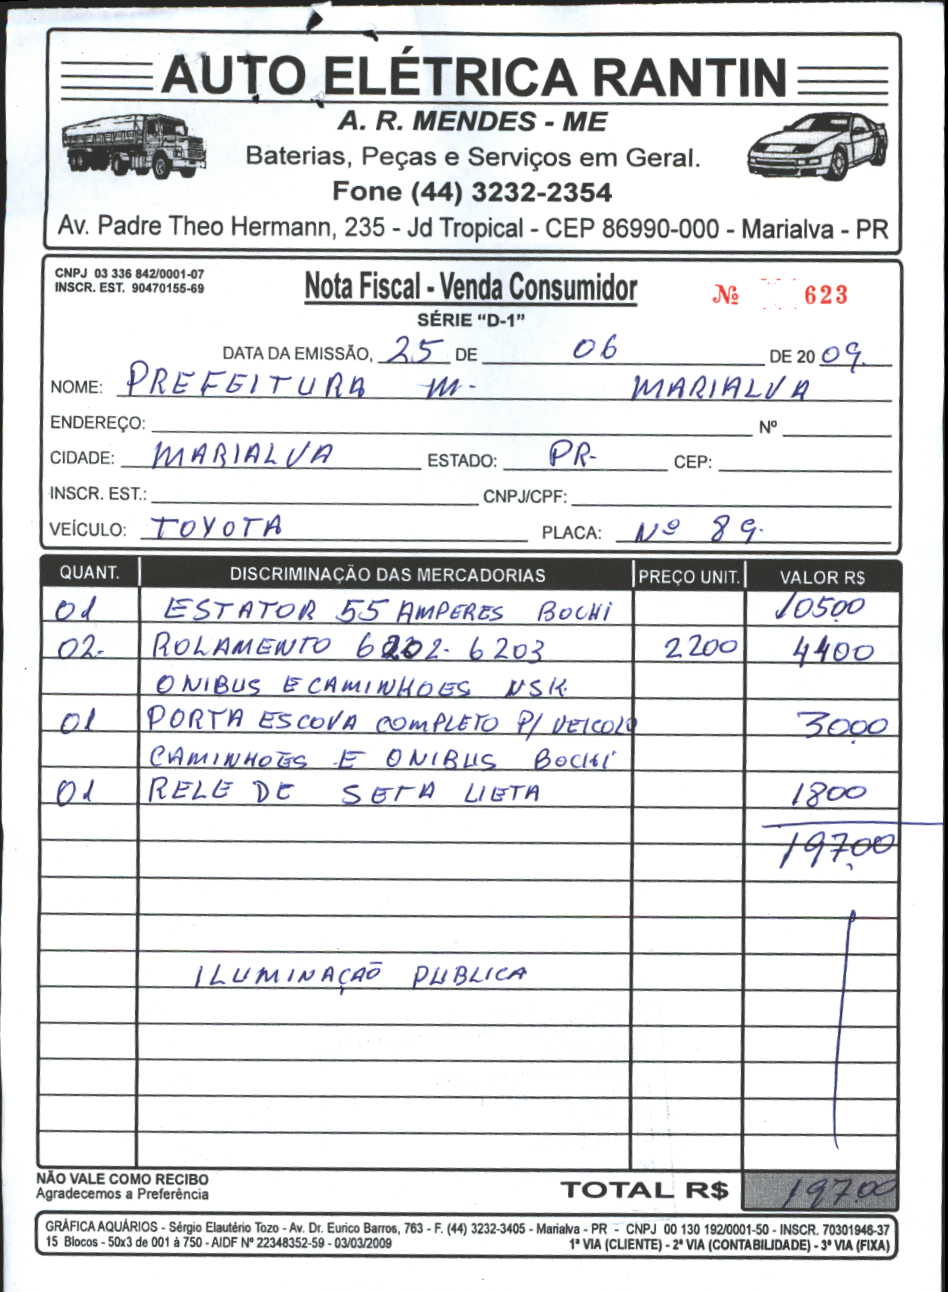 AUTO ELÉTRICA RANTIN
A. R. MENDES - ME
Baterias, Peças e Serviços em Geral.
Fone (44) 3232-2354
Av. Padre Theo Hermann, 235 - Jd Tropical - CEP 86990-000 - Marialva - PR
CNPJ 03 336 842/0001-07
INSCR. EST. 90470155-69
Nota Fiscal - Venda Consumidor
Nº 623
SÉRIE "D-1"
DATA DA EMISSÃO, 25 DE 06 DE 2009.
NOME: PREFEITURA M. MARIALVA
ENDEREÇO: Nº
CIDADE: MARIALVA ESTADO: PR- CEP:
INSCR. EST.: CNPJ/CPF:
VEÍCULO: TOYOTA PLACA: Nº 89.
QUANT. DISCRIMINAÇÃO DAS MERCADORIAS PREÇO UNIT. VALOR R$
01 ESTATOR 55 AMPERES BOCHI 10500
02- ROLAMENTO 6202- 6203 2200 4400
ONIBUS E CAMINHOES NSK
01 PORTA ESCOVA COMPLETO P/ VEICOLO 3000
CAMINHOES E ONIBUS BOCHI
01 RELE DE SETA LIETA 1800
197.00
ILUMINAÇAO PUBLICA
NÃO VALE COMO RECIBO
Agradecemos a Preferência
TOTAL R$ 197.00
GRÁFICA AQUÁRIOS - Sérgio Elautério Tozo - Av. Dr. Eurico Barros, 763 - F. (44) 3232-3405 - Marialva - PR - CNPJ 00 130 192/0001-50 - INSCR. 70301946-37
15 Blocos - 50x3 de 001 à 750 - AIDF Nº 22348352-59 - 03/03/2009 1ª VIA (CLIENTE) - 2ª VIA (CONTABILIDADE) - 3ª VIA (FIXA)